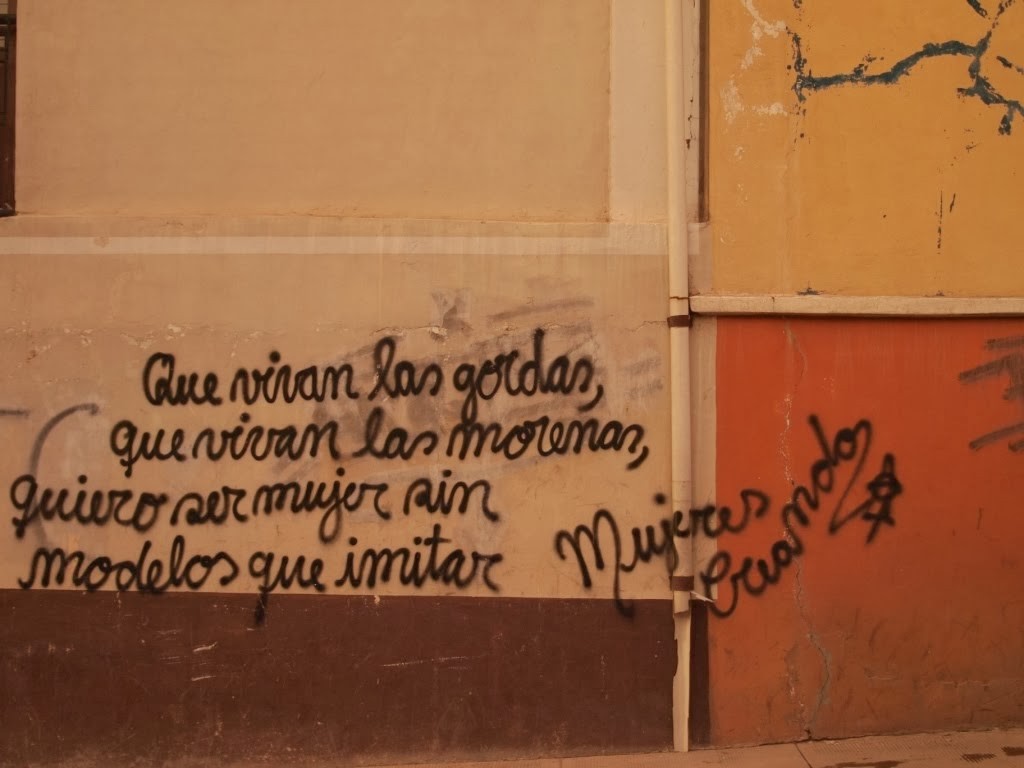 Que vivan las gordas,
que vivan las morenas,
quiero ser mujer sin
modelos que imitar
Mujeres
Creando